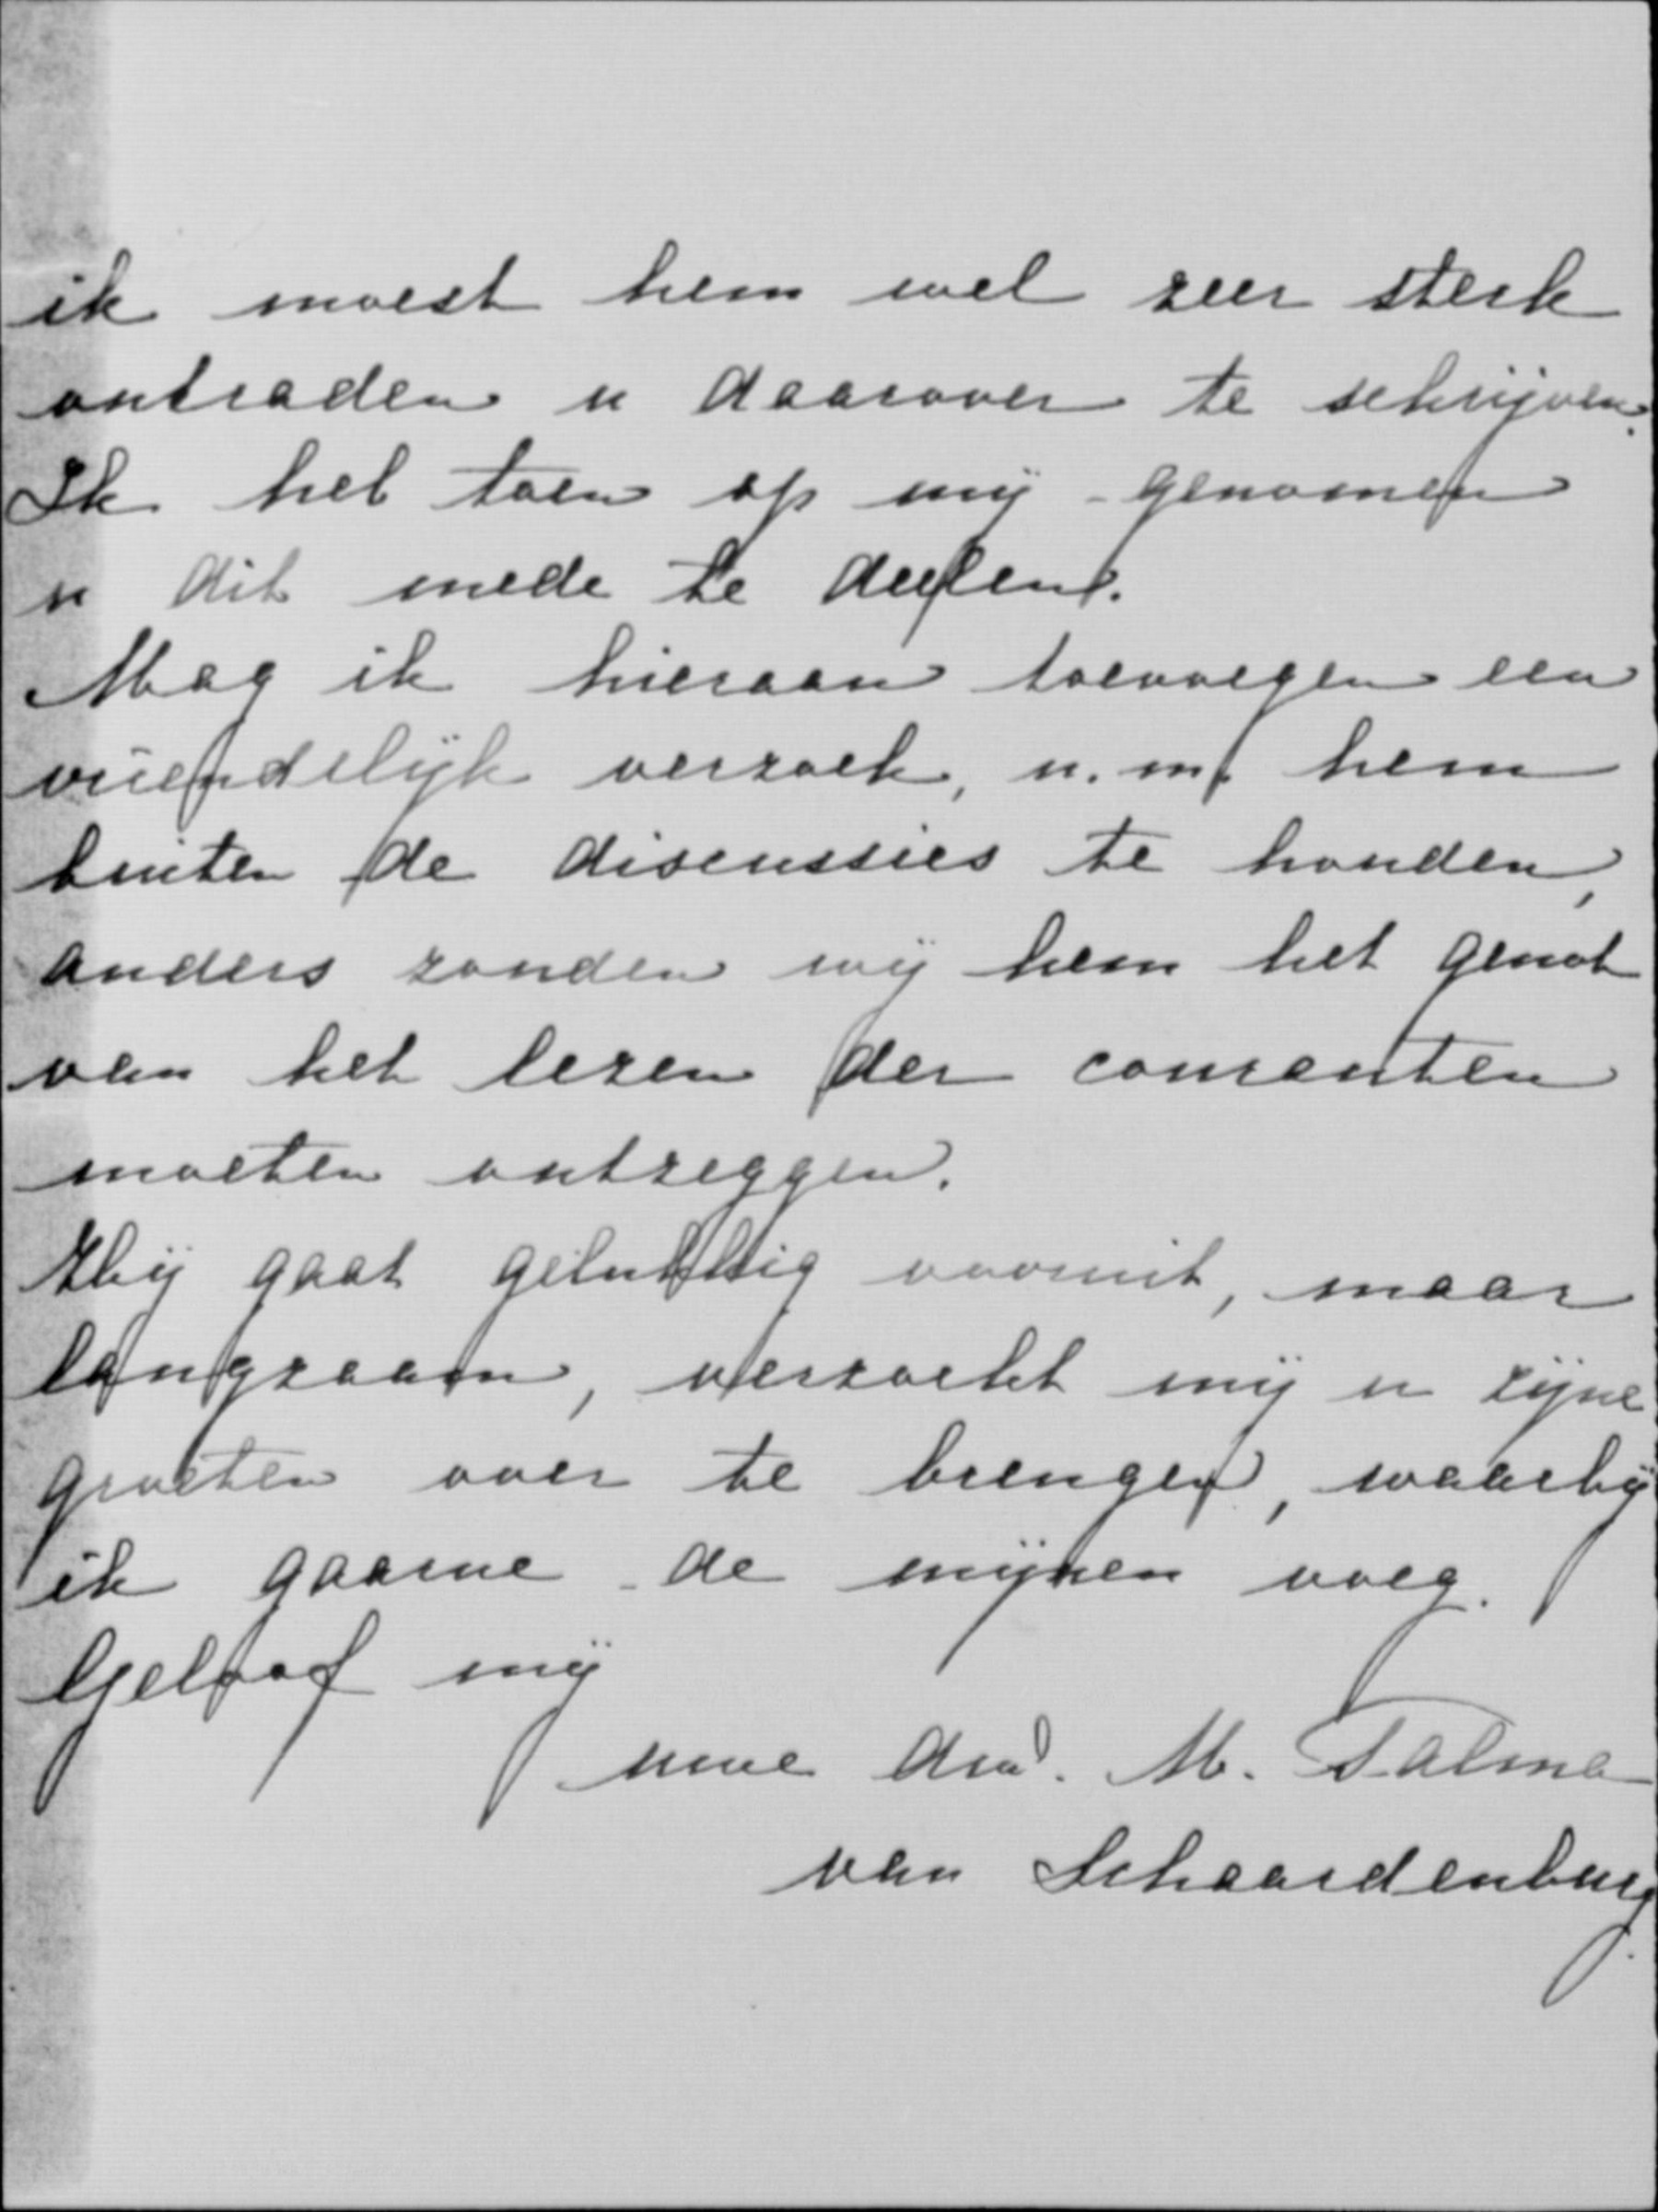 ik moest hem wel zeer sterk
ontraden u daarover te schrijven.
Ik heb toen op mij genomen
u dit mede te deelen.
Mag ik hieraan toevoegen een
vriendelijk verzoek, n.m. hem
buiten de discussies te houden,
anders zouden wij hem het genot
van het lezen der couranten
moeten ontzeggen.
Hij gaat gelukkig vooruit, maar
langzaam, verzoekt mij u zijne
groeten over te brengen, waarbij
ik gaarne de mijnen voeg.
Geloof mij
uwe dwd. M. Talma
van Schaardenburg.